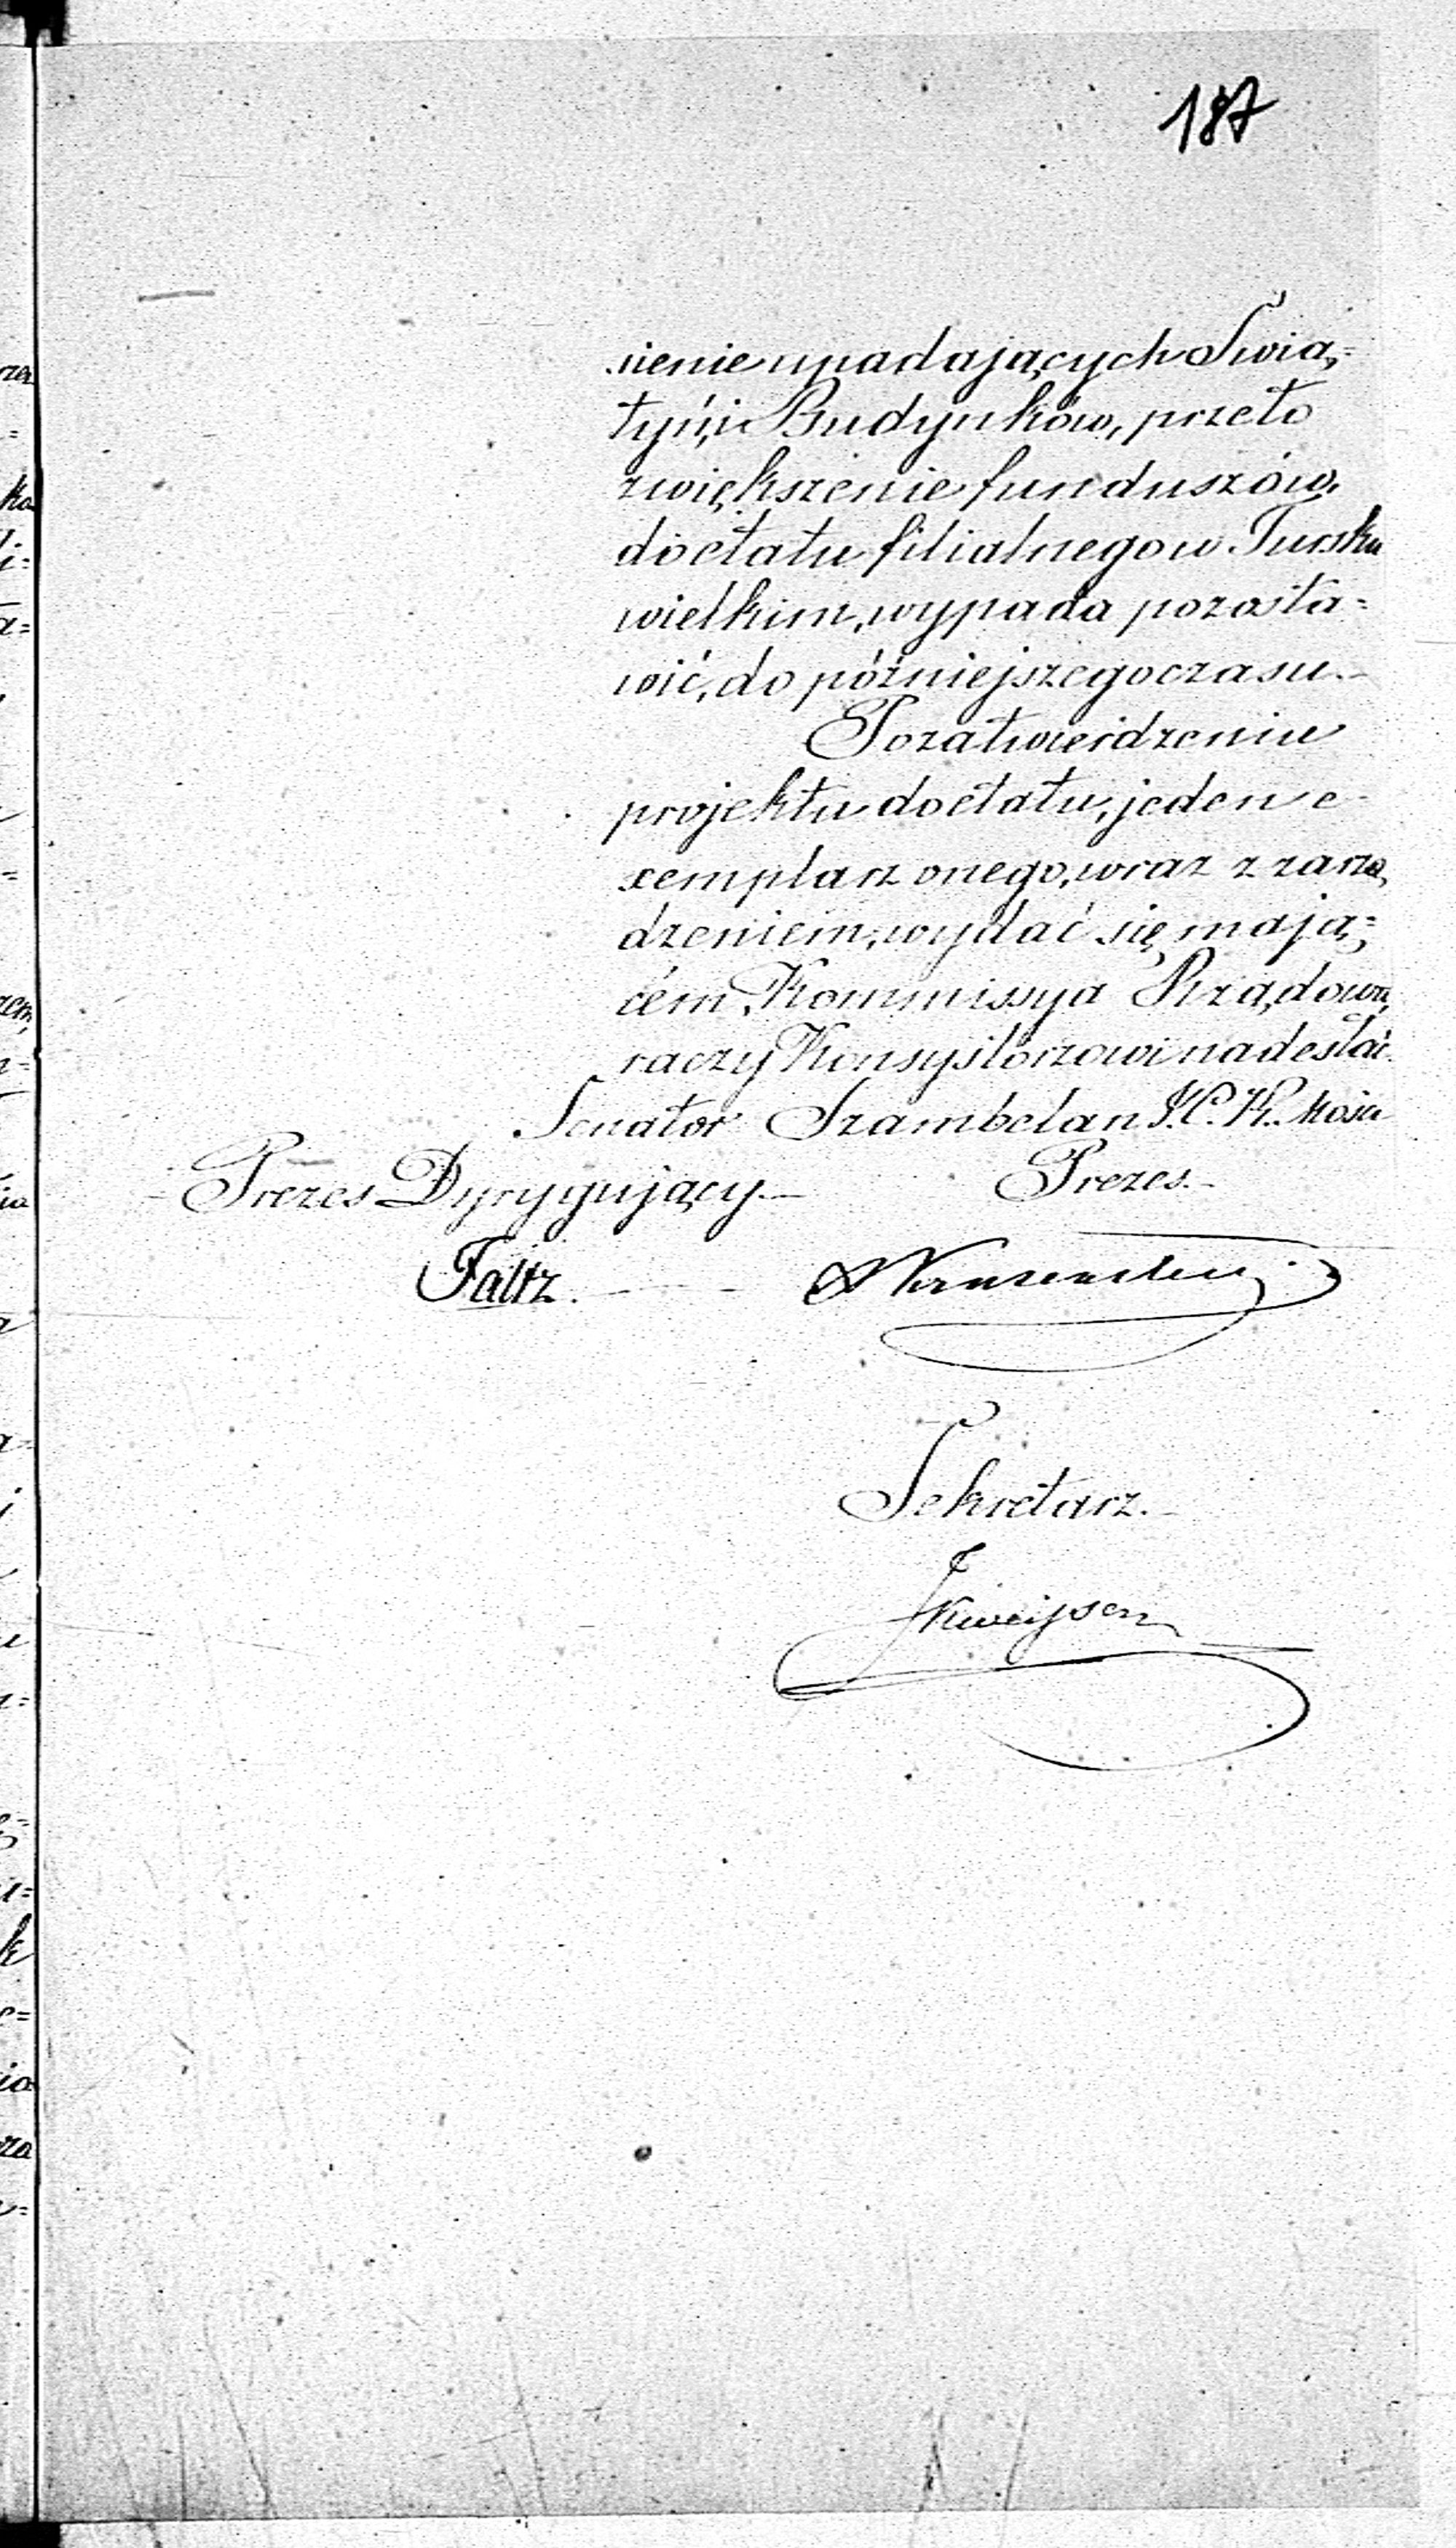 187
sienie upadających Świą=
tyń, i Budynków, przeto
zwiększenie funduszów,
doctatu filialnego w Tursku
wielkim, wypada pozosta=
wić, do późniejszego czasu.
Po zatwierdzeniu
projektu doctatu, jeden e-
xemplarz onego, wraz z zarzą
dzeniem, wydać się mają=
cém, Kommissya Rządowa,
raczy Konsystorzowi nadesłać.
Senator Szambelan J. C. K. Mości
Prezes Dyrygujący Prezes.
Faltz.
Sekretarz.